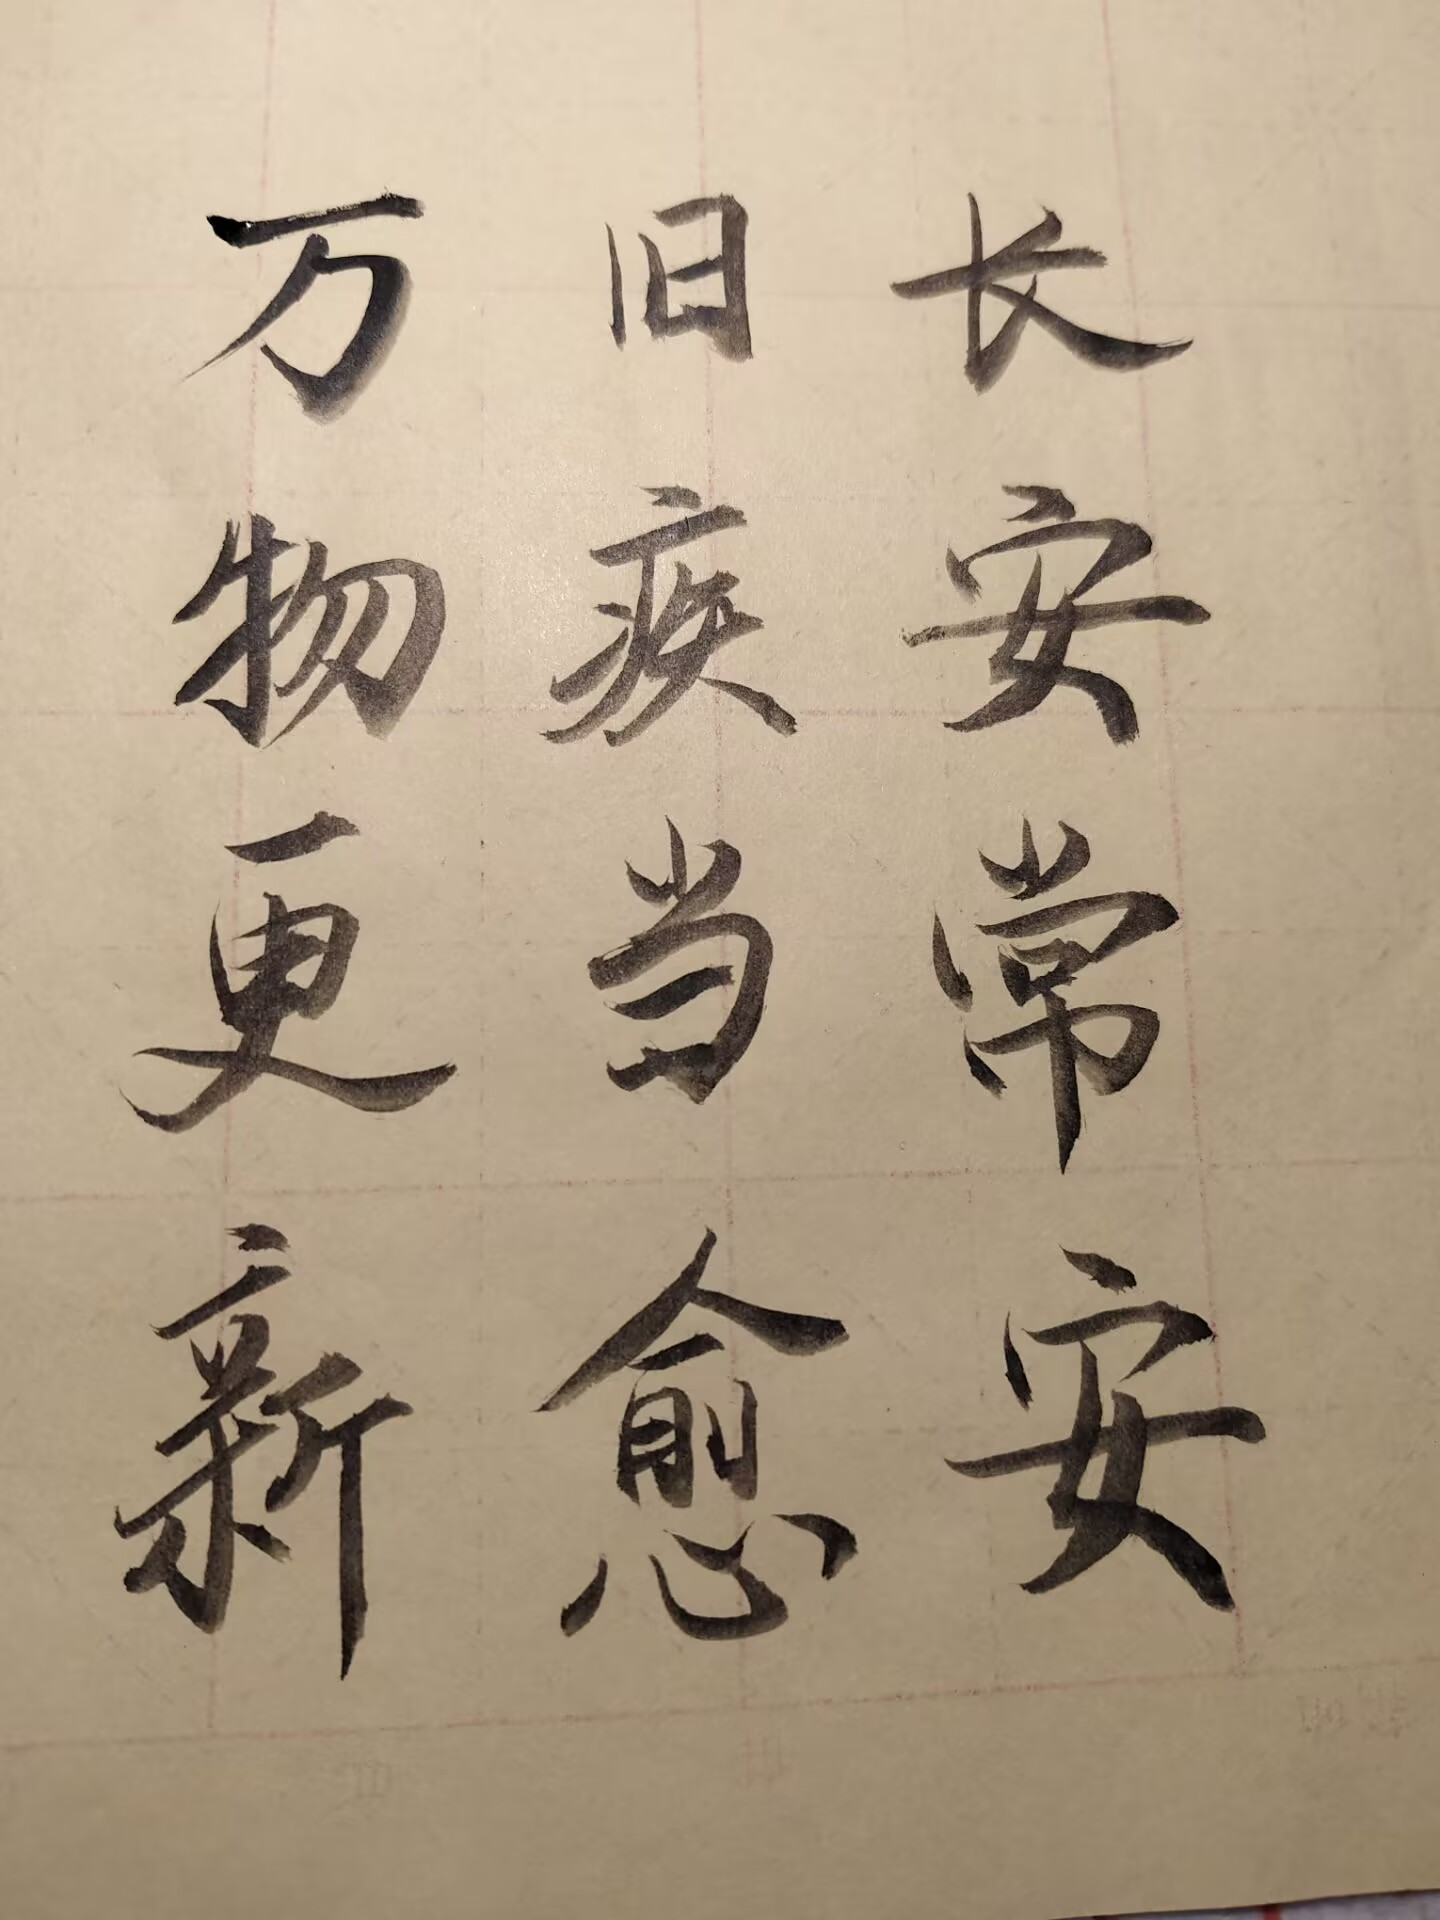 长安常安
旧疾当愈
万物更新